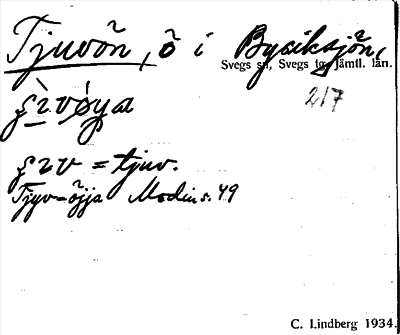 Tjuvön, ö i Bysiksjön,
Svegs sn, Svegs tg, Jämtl. län.
217
ʃùvøya
ʃuv = tjuv.
Tjyv-öjja Modin s. 49
C. Lindberg 1934.